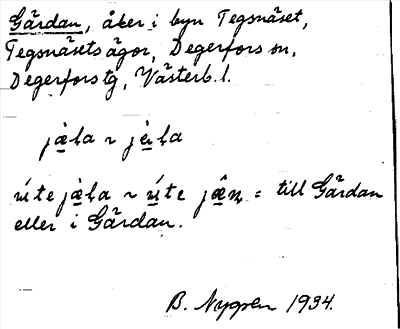 Gärdan, åker i byn Tegsnäset,
Tegsnäsets ägor, Degerfors sn,
Degerfors tg, Västerb. l.
jæ̀ḷa ~ jæ̀ḷa
ú̄te jæ̀ḷa ~ ú̄te jæ̂ṇ = till Gärdan
eller i Gärdan.
B. Nygren 1934.